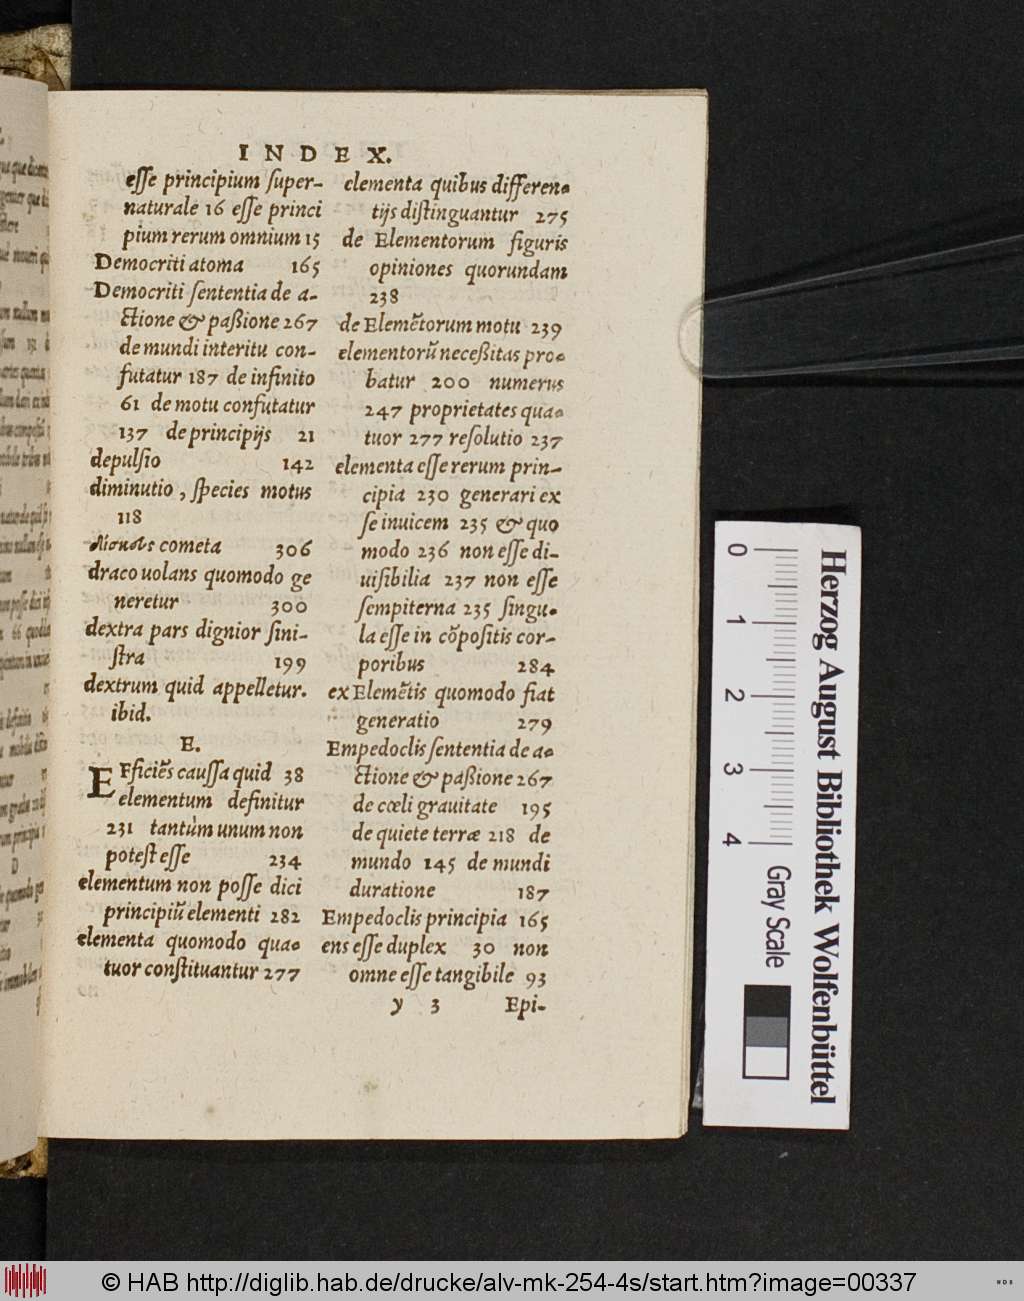 INDEX.
esse principium super-
naturale 16 esse princi
pium rerum omnium 15
Democriti atoma 165
Democriti sententia de a-
ctione & paßione 267
de mundi interitu con-
futatur 187 de infinito
61 de motu confutatur
137 de principijs 21
depulsio 142
diminutio, species motus
118
cometa 306
draco uolans quomodo ge
neretur 300
dextra pars dignior sini-
stra 199
dextrum quid appelletur.
ibid.
E.
EFficiẽs caussa quid 38
elementum definitur
231 tantùm unum non
potest esse 234
elementum non posse dici
principiũ elementi 282
elementa quomodo qua-
tuor constituantur 277
elementa quibus differen-
tijs distinguantur 275
de Elementorum figuris
opiniones quorundam
238
de Elemẽtorum motu 239
elementorũ neceßitas pro-
batur 200 numerus
247 proprietates qua-
tuor 277 resolutio 237
elementa esse rerum prin-
cipia 230 generari ex
se inuicem 235 & quo
modo 236 non esse di-
uisibilia 237 non esse
sempiterna 235 singu-
la esse in cõpositis cor-
poribus 284
ex Elemẽtis quomodo fiat
generatio 279
Empedoclis sententia de a-
ctione & paßione 267
de cœli grauitate 195
de quiete terræ 218 de
mundo 145 de mundi
duratione 187
Empedoclis principia 165
ens esse duplex 30 non
omne esse tangibile 93
y 3 Epi-
0 1 2 3 4
Gray Scale
Herzog August Bibliothek Wolfenbüttel
© HAB http://diglib.hab.de/drucke/alv-mk-254-4s/start.htm?image=00337